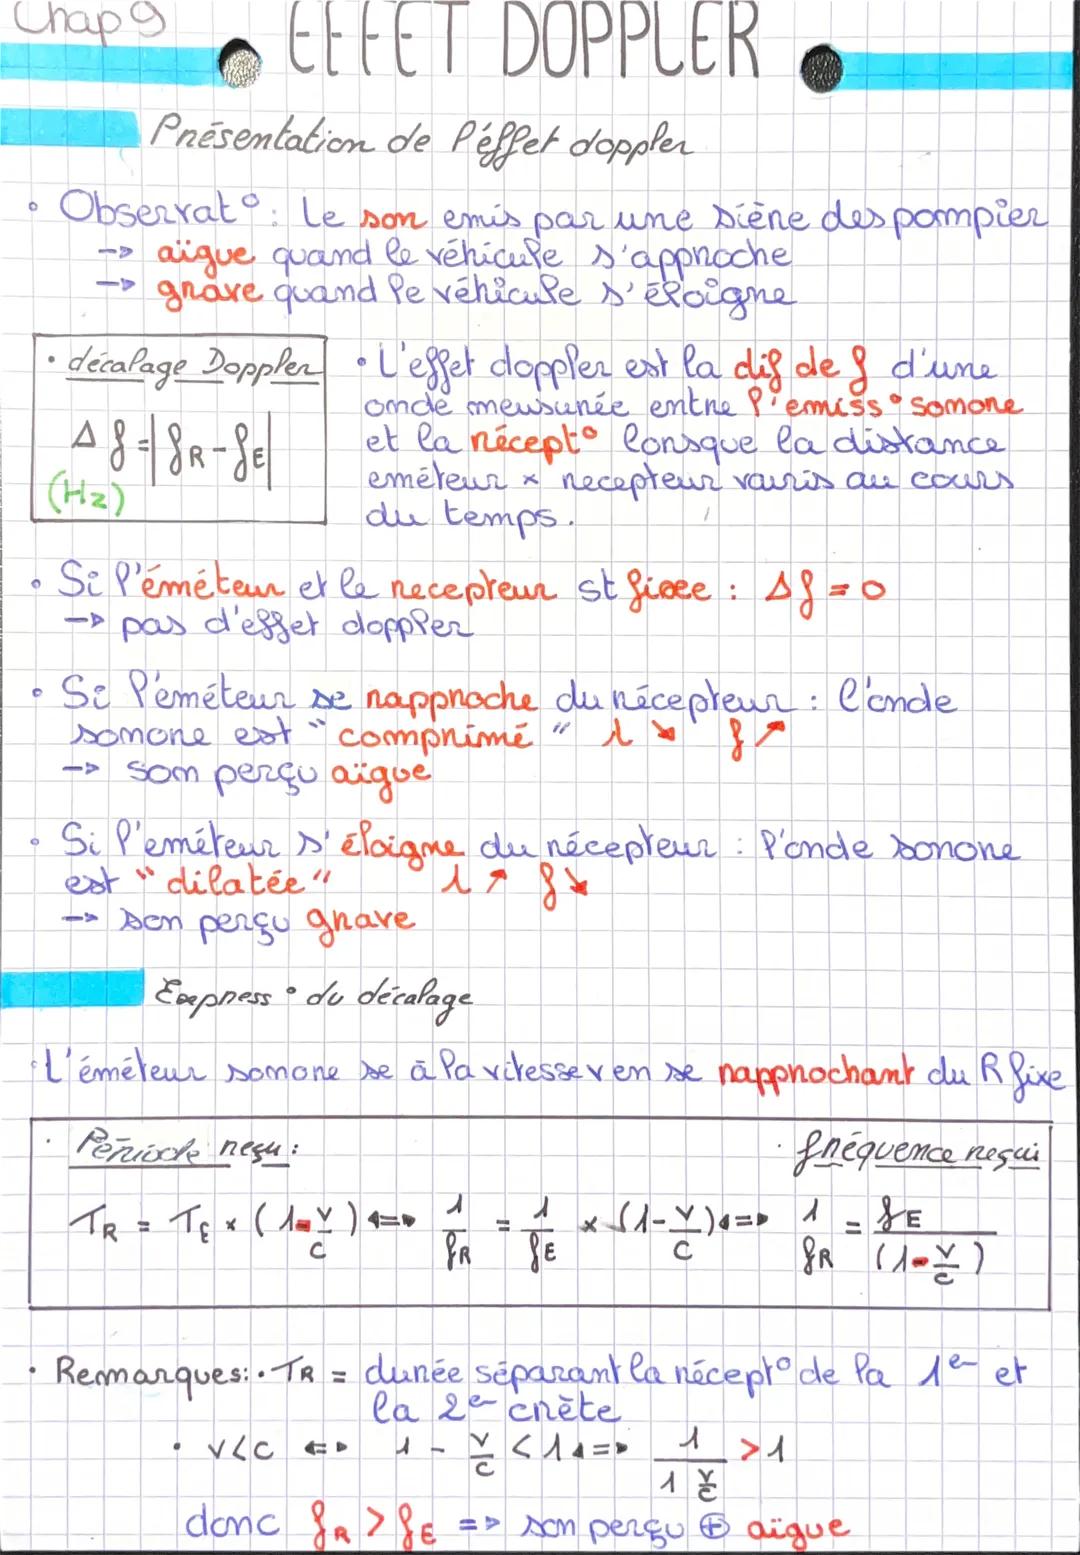 Chap 9
EFFET DOPPLER
Présentation de l'éffet doppler
• Observat° : Le son emis par une siène des pompier
-> aïgue quand le véhicule s'approche
-> grave quand le véhicule s'éloigne
• décalage Doppler
Δf = |fR - fE|
(Hz)
• L'effet doppler est la dif de f d'une
onde meusurée entre l'emiss° sonore
et la récept° lorsque la distance
eméteur × recepteur varis au cours
du temps.
• Si l'éméteur et le recepteur st fixee : Δf = 0
-> pas d'effet doppler
• Si l'eméteur se rapproche du récepteur : l'onde
sonore est "comprimé" λ ↘ f ↗
-> son perçu aïgue
• Si l'eméteur s'éloigne du récepteur : l'onde sonore
est "dilatée" λ ↗ f ↘
-> son perçu grave
Express° du décalage
• L'éméteur sonore se à la vitesse v en se rapprochant du R fixe
• Période reçu :
• fréquence reçui
TR = TE × (1 - v/c) <=> 1/fR = 1/fE × (1 - v/c) <=> 1/fR = fE/(1 - v/c)
• Remarques: • TR = durée séparant la récept° de la 1e et
la 2e crète
• v < c <=> 1 - v/c < 1 <=> 1/(1 v/c) > 1
donc fR > fE => son perçu ⊕ aïgue